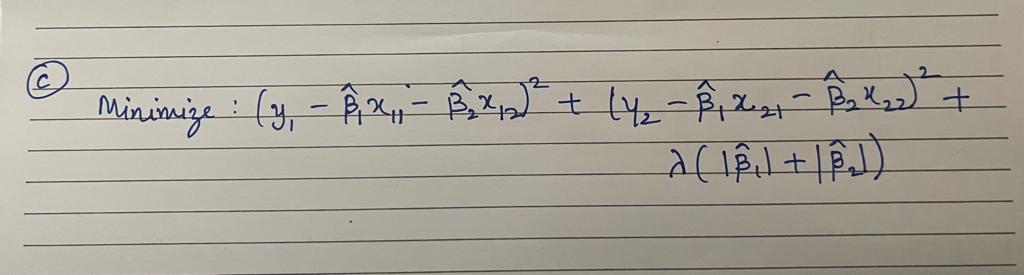 (c) Minimize : (y₁ - β̂₁x₁₁ - β̂₂x₁₂)² + (y₂ - β̂₁x₂₁ - β̂₂x₂₂)² +
λ(|β̂₁| + |β̂₂|)